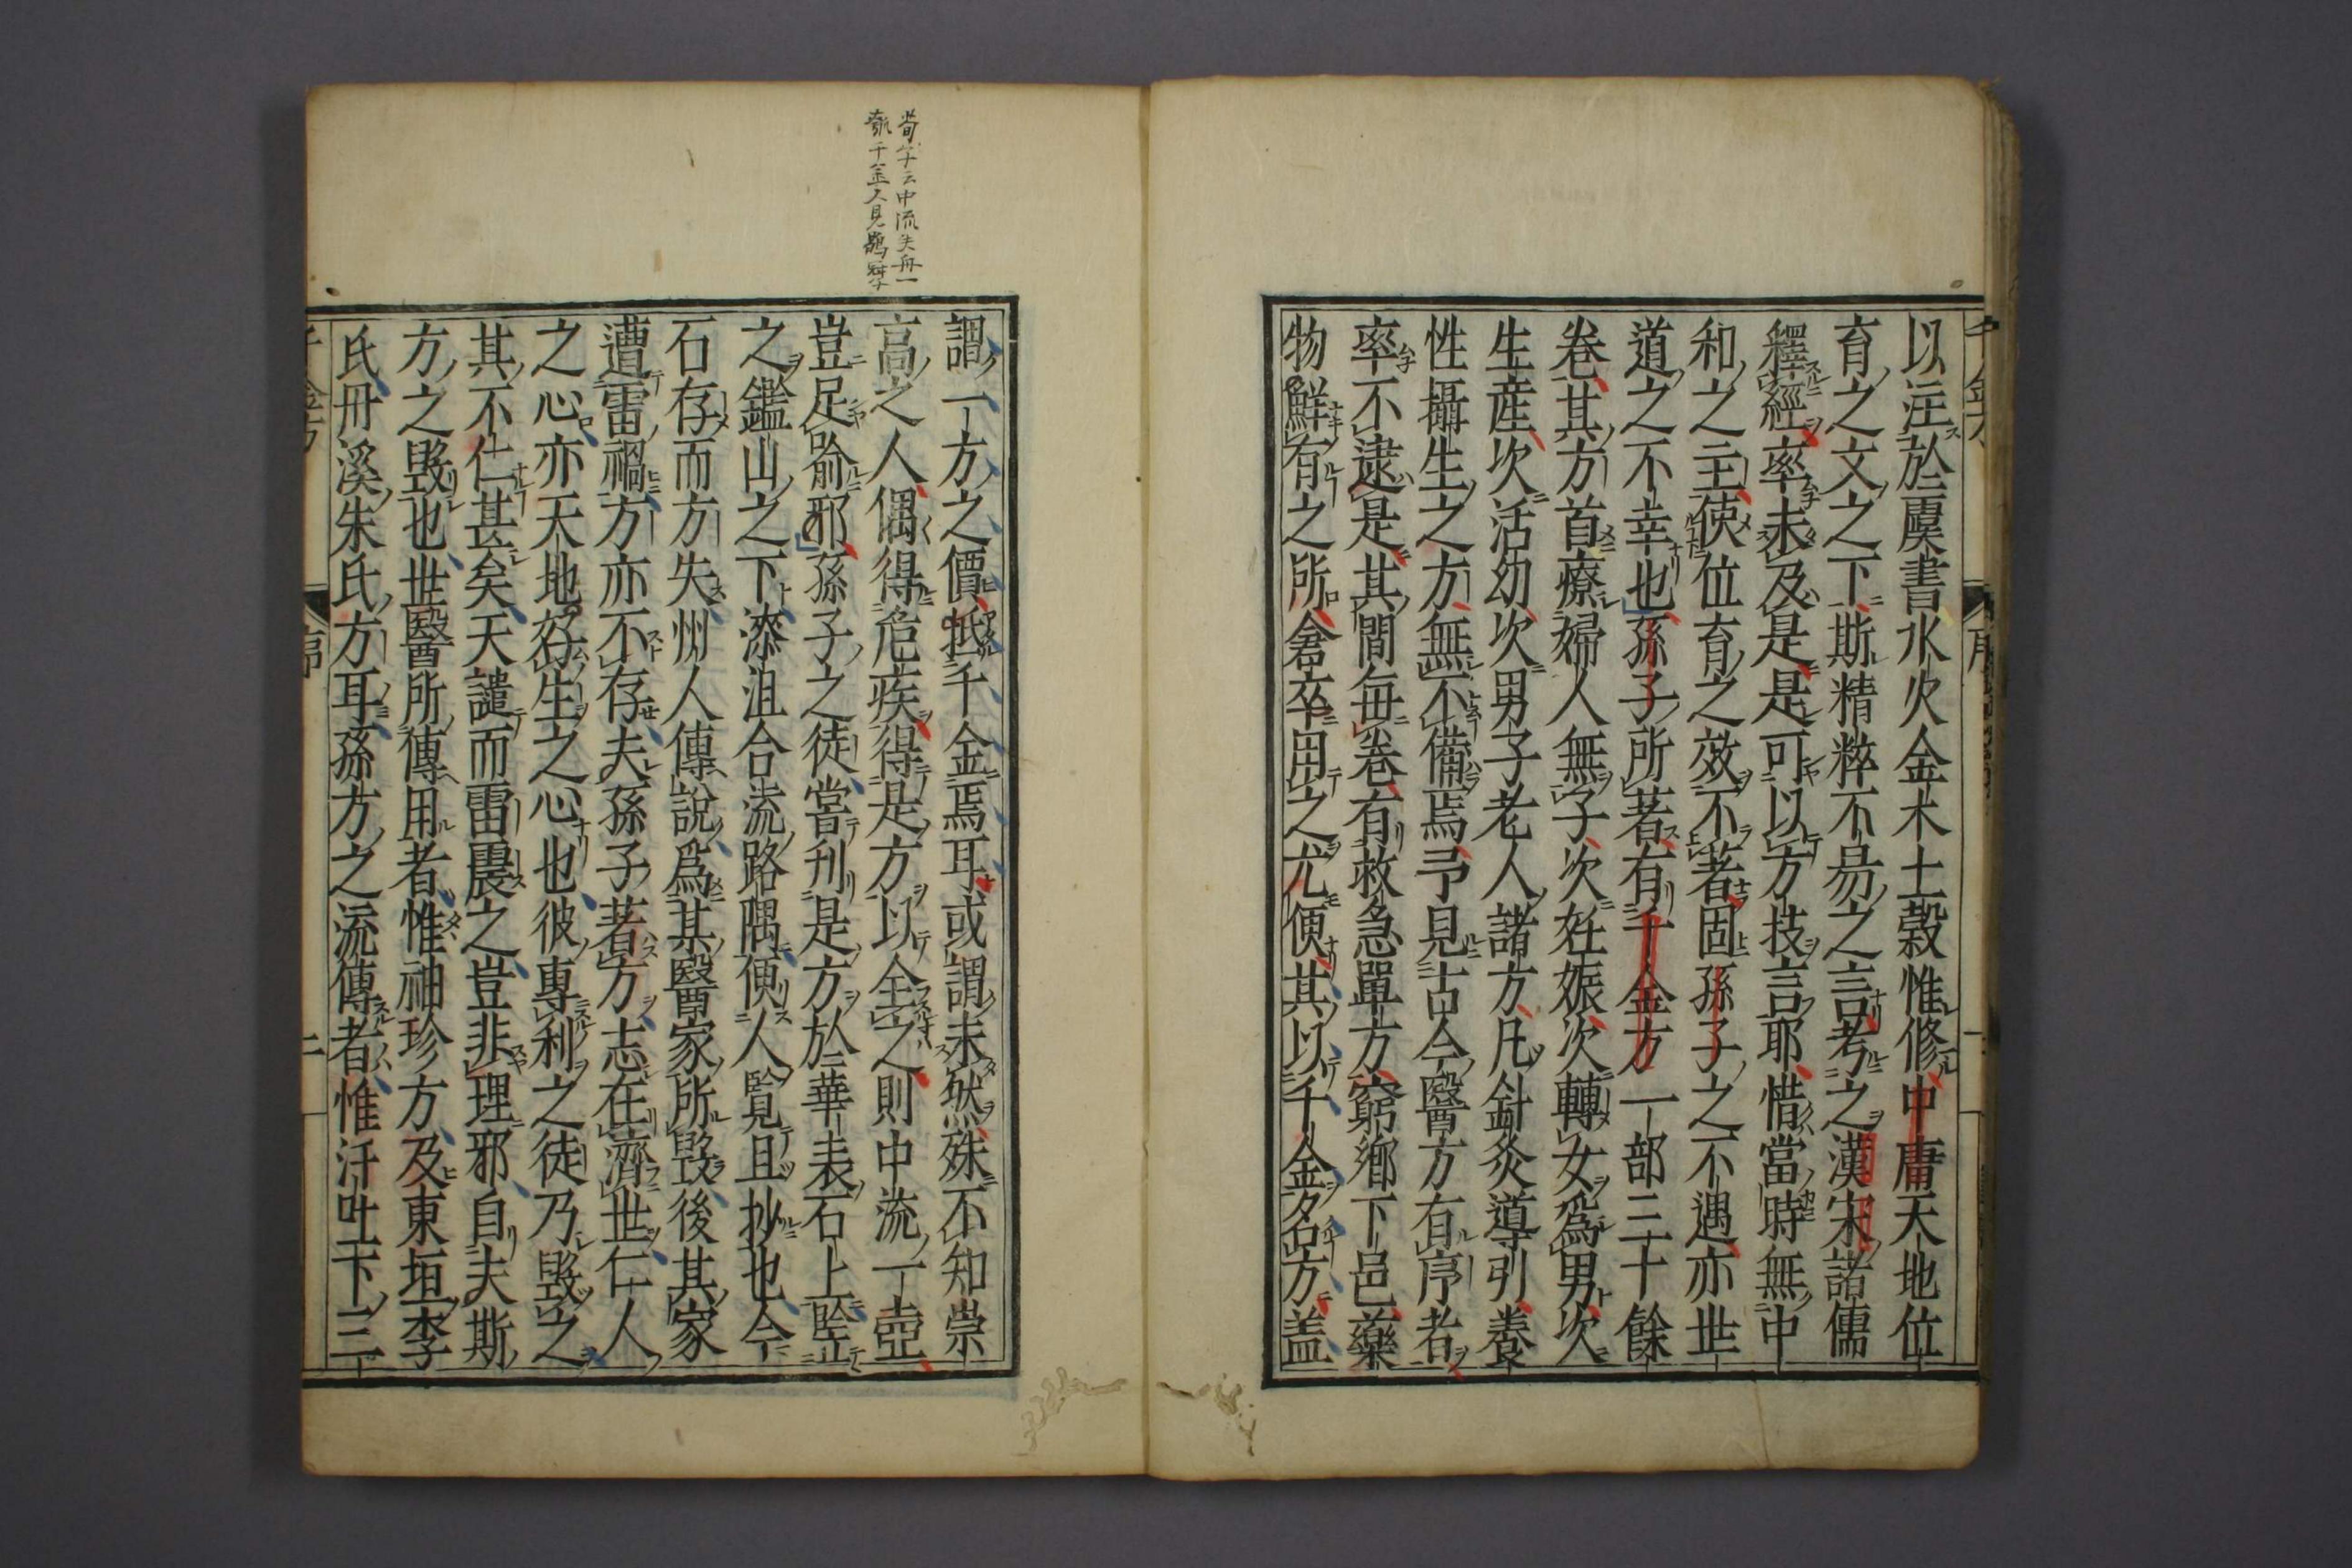 以注於虞書水火金木土穀惟修中庸天地位
育之文之下斯精粹不易之言考之漢宋諸儒
釋經率未及是是可以方技言耶惜當時無中
和之主使位育之效不著固孫子之不遇亦世
道之不幸也孫子所著有千金方一部三十餘
卷其方首療婦人無子次妊娠次轉女爲男次
生產次活幼次男子老人諸方凡針灸導引養
性攝生之方無不備焉予見古今醫方有序者
率不逮是其間每卷有救急單方窮鄉下邑藥
物鮮有之所倉卒用之尤便其以千金名方蓋
謂一方之價抵千金焉耳或謂未然殊不知崇
高之人偶得危疾得是方以全之則中流一壺
豈足喻邪孫子之徒嘗刊是方於華表石上竪
之鑑山之下漆沮合流路隅便人覽且抄也今
石存而方失州人傳說爲某醫家所毀後其家
遭雷禍方亦不存夫孫子著方志在濟世仁人
之心亦天地好生之心也彼專利之徒乃毀之
其不仁甚矣天譴而雷震之豈非理邪自夫斯
方之毀也世醫所傳用者惟袖珍方及東垣李
氏丹溪朱氏方耳孫方之流傳者惟汗吐下三
中流失舟一
瓠千金又見鶡冠子
千金方
序
二